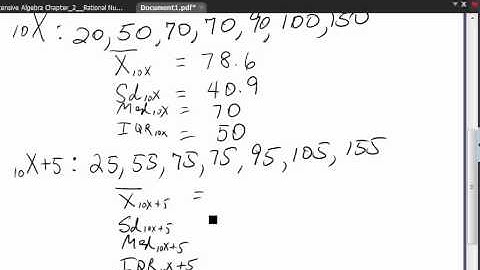 ensive Algebra Chapter_2__Rational Nu... Document1.pdf*
10X : 20, 50, 70, 70, 90, 100, 150
X̄10X = 78.6
Sd10X = 40.9
Med10X = 70
IQR10X = 50
10X+5 : 25, 55, 75, 75, 95, 105, 155
X̄10X+5 =
Sd10X+5
Med10X+5
IQR10X+5